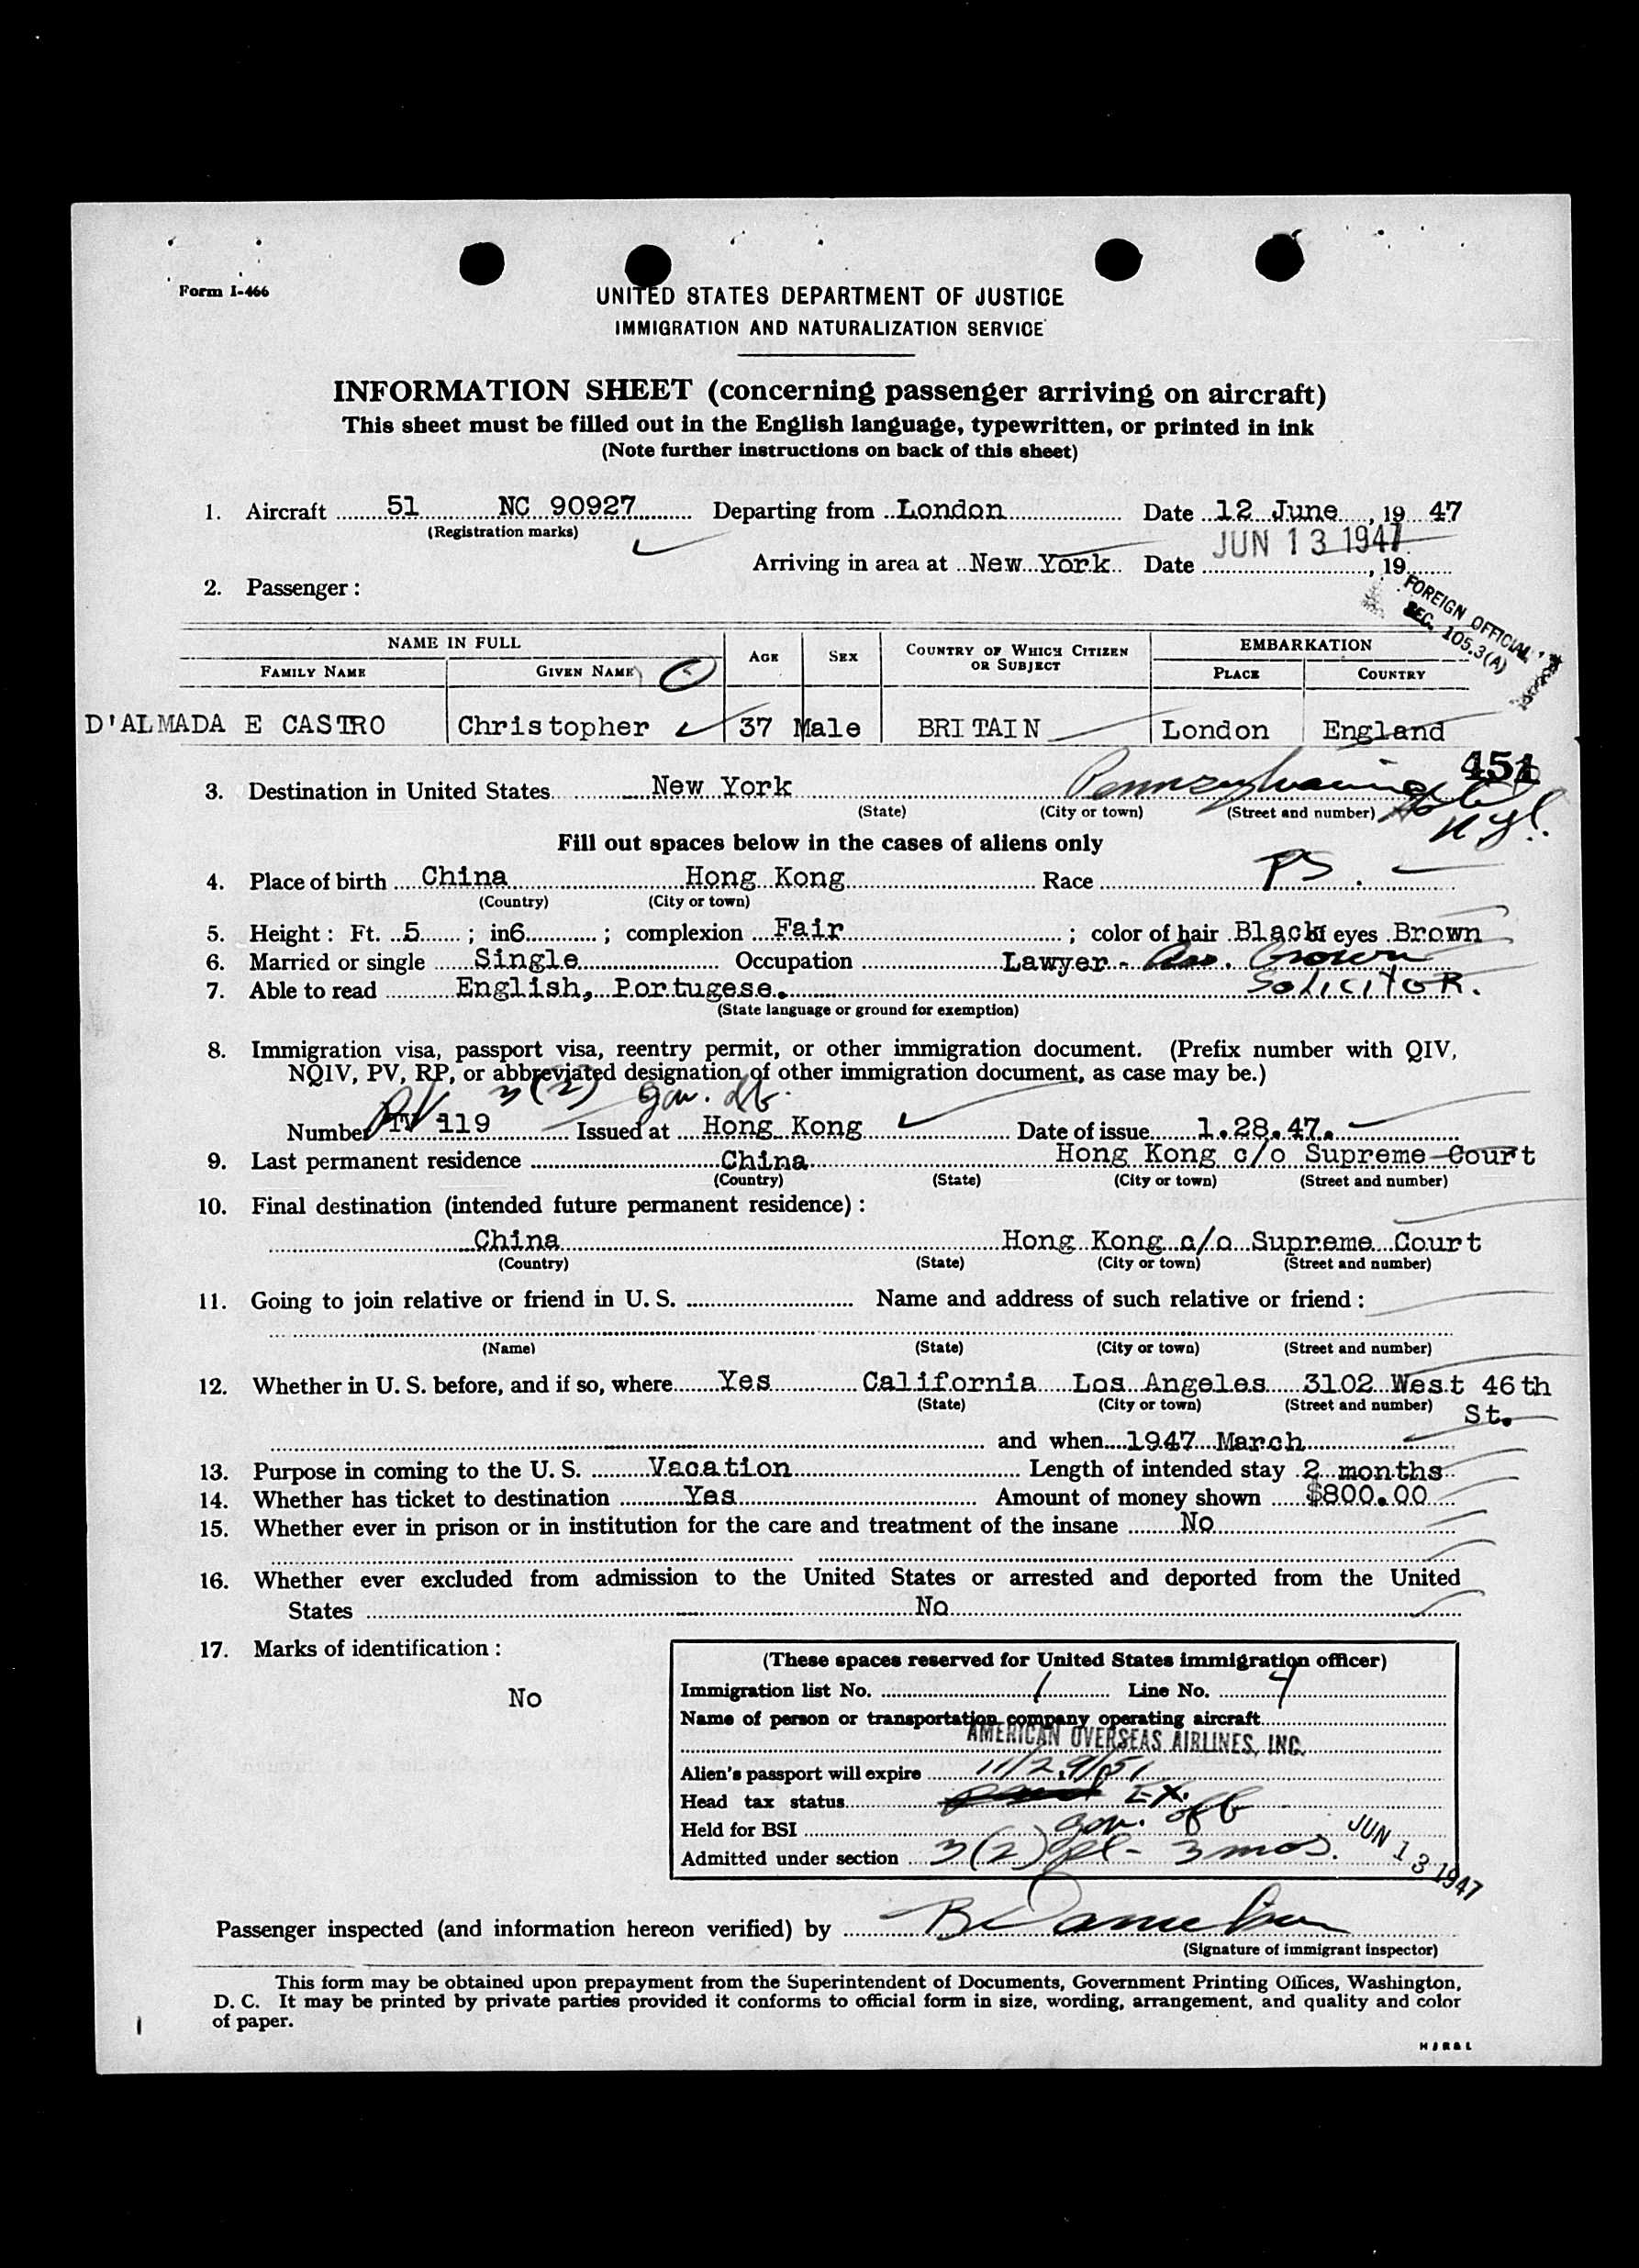 Form I-466
UNITED STATES DEPARTMENT OF JUSTICE
IMMIGRATION AND NATURALIZATION SERVICE
INFORMATION SHEET (concerning passenger arriving on aircraft)
This sheet must be filled out in the English language, typewritten, or printed in ink
(Note further instructions on back of this sheet)
1. Aircraft 51 NC 90927 Departing from London Date 12 June, 19 47
(Registration marks)
JUN 13 1947
Arriving in area at New York Date , 19
2. Passenger:
FOREIGN OFFICIAL
SEC. 105.3(A)
NAME IN FULL AGE SEX COUNTRY OF WHICH CITIZEN OR SUBJECT EMBARKATION
FAMILY NAME GIVEN NAME PLACE COUNTRY
D'ALMADA E CASTRO Christopher 37 Male BRITAIN London England
451
3. Destination in United States New York Pennsylvania
(State) (City or town) (Street and number)
N.Y.
Fill out spaces below in the cases of aliens only
4. Place of birth China Hong Kong Race PS
(Country) (City or town)
5. Height: Ft. 5 ; in6 ; complexion Fair ; color of hair Black eyes Brown
6. Married or single Single Occupation Lawyer - Ass. Crown
7. Able to read English, Portugese. SOLICITOR.
(State language or ground for exemption)
8. Immigration visa, passport visa, reentry permit, or other immigration document. (Prefix number with QIV,
NQIV, PV, RP, or abbreviated designation of other immigration document, as case may be.)
PV 3(2) gov.
Number TV 119 Issued at Hong Kong Date of issue 1.28.47.
9. Last permanent residence China Hong Kong c/o Supreme Court
(Country) (State) (City or town) (Street and number)
10. Final destination (intended future permanent residence):
China Hong Kong c/o Supreme Court
(Country) (State) (City or town) (Street and number)
11. Going to join relative or friend in U. S. Name and address of such relative or friend:
(Name) (State) (City or town) (Street and number)
12. Whether in U. S. before, and if so, where Yes California Los Angeles 3102 West 46th
(State) (City or town) (Street and number) St.
and when 1947 March
13. Purpose in coming to the U. S. Vacation Length of intended stay 2 months
14. Whether has ticket to destination Yes Amount of money shown $800.00
15. Whether ever in prison or in institution for the care and treatment of the insane No
16. Whether ever excluded from admission to the United States or arrested and deported from the United
States No
17. Marks of identification:
No
(These spaces reserved for United States immigration officer)
Immigration list No. 1 Line No. 4
Name of person or transportation company operating aircraft
AMERICAN OVERSEAS AIRLINES, INC.
Alien's passport will expire 11/29/51
Head tax status EX.
Held for BSI gov. off
Admitted under section 3(2) 3 mos. JUN 13 1947
Passenger inspected (and information hereon verified) by
(Signature of immigrant inspector)
This form may be obtained upon prepayment from the Superintendent of Documents, Government Printing Offices, Washington,
D. C. It may be printed by private parties provided it conforms to official form in size, wording, arrangement, and quality and color
of paper.